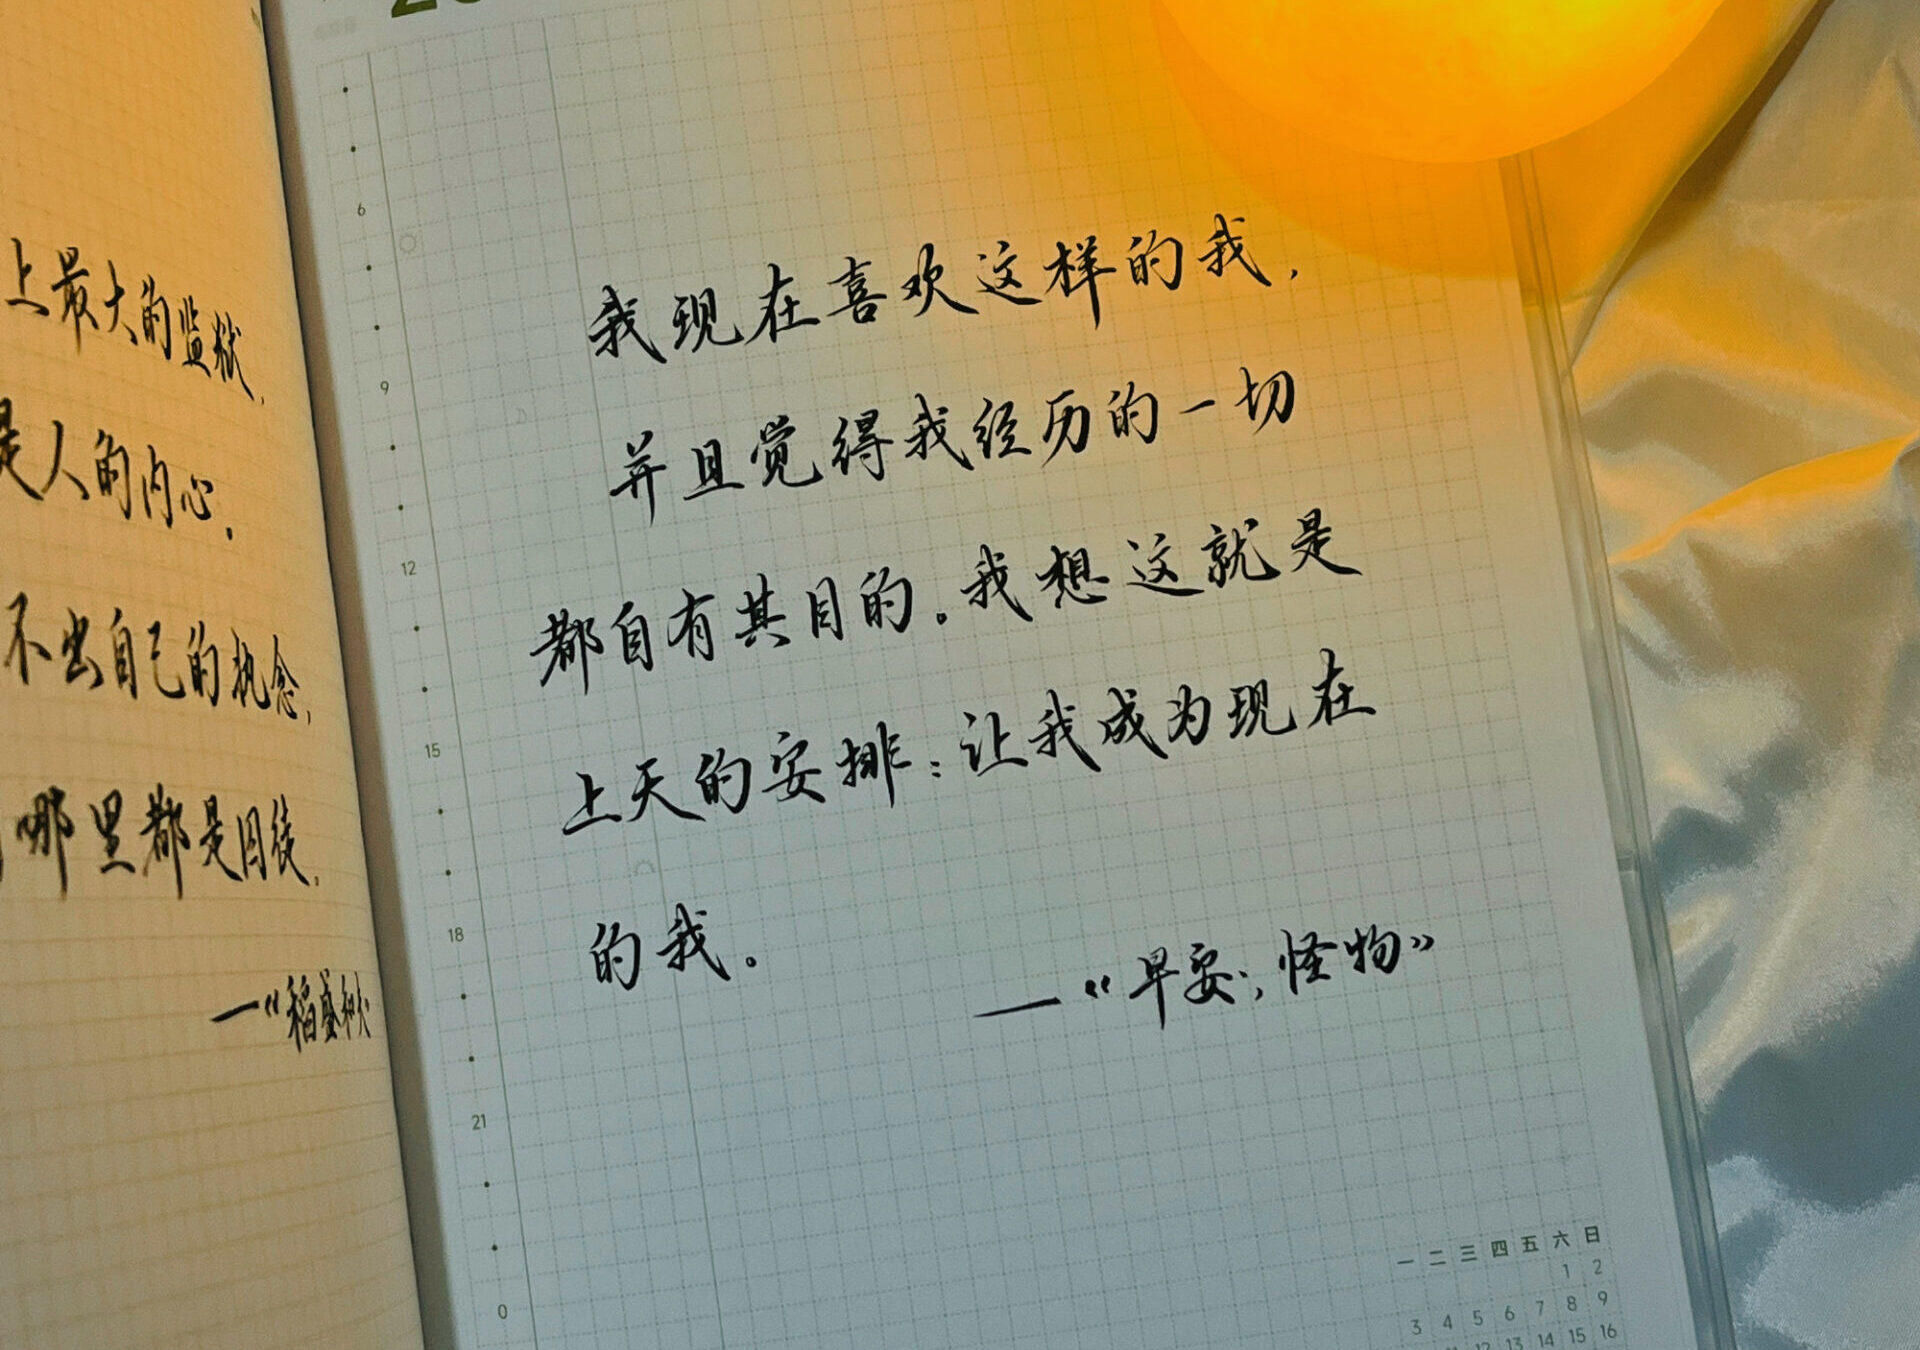 上最大的监狱,
是人的内心.
不出自己的执念,
哪里都是囚徒.
—《稻盛和夫
6
9
12
15
18
21
0
我现在喜欢这样的我,
并且觉得我经历的一切
都自有其目的。我想这就是
上天的安排:让我成为现在
的我。
—《早安,怪物》
一 二 三 四 五 六 日
1 2
3 4 5 6 7 8 9
12 13 14 15 16